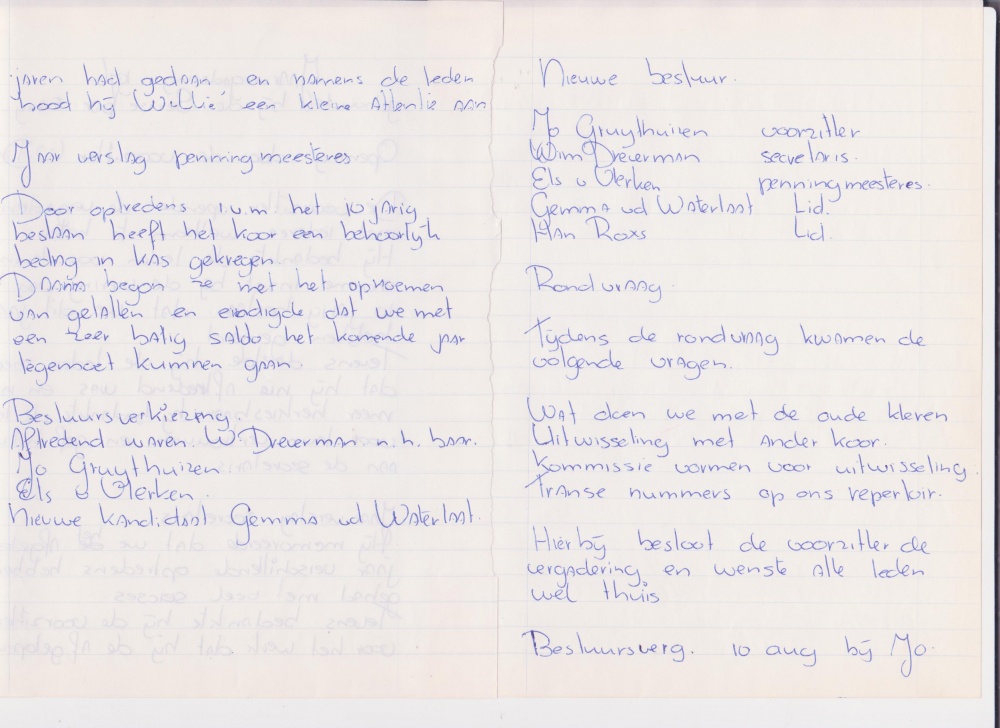 jaren had gedaan en namens de leden
bood hij Willie een kleine Attentie aan
Jaar verslag penningmeesteres
Door optredens i.v.m het 10 jarig
bestaan heeft het koor een behoorlijk
bedrag in kas gekregen
Daarna begon ze met het opnoemen
van getallen en eindigde dat we met
een zeer batig saldo het komende jaar
tegemoet kunnen gaan
Bestuursverkiezing.
Aftredend waren W Dreuerman n.h. baar.
Jo Gruythuizen
Els v Vlerken.
Nieuwe kandidaat Gemma vd Waterlaat.
Nieuwe bestuur.
Jo Gruythuizen voorzitter
Wim Dreuerman secretaris.
Els v Vlerken penningmeesteres.
Gemma vd Waterlaat Lid.
Han Roxs Lid.
Rondvraag.
Tijdens de rondvraag kwamen de
volgende vragen.
Wat doen we met de oude kleren
Uitwisseling met ander koor.
Kommissie vormen voor uitwisseling.
Franse nummers op ons repertoir.
Hierbij besloot de voorzitter de
vergadering en wenste alle leden
wel thuis
Bestuursverg. 10 aug bij Jo.